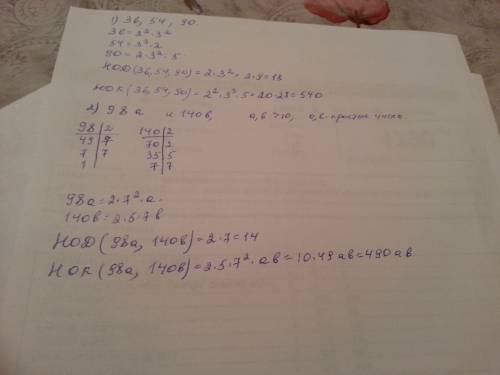 1) 36, 54, 90.
36 = 2² · 3²
54 = 3³ · 2
90 = 2 · 3² · 5
НОД (36, 54, 90) = 2 · 3² = 2 · 9 = 18
НОК (36, 54, 90) = 2² · 3³ · 5 = 20 · 27 = 540
2) 98а и 140в, а, в > 10, а, в - простые числа.
98 | 2 140 | 2
49 | 7 70 | 2
7 | 7 35 | 5
1 7 | 7
98а = 2 · 7² · а.
140в = 2 · 5 · 7 · в
НОД (98а, 140в) = 2 · 7 = 14
НОК (98а, 140в) = 2 · 5 · 7² · ав = 10 · 49 ав = 490 ав